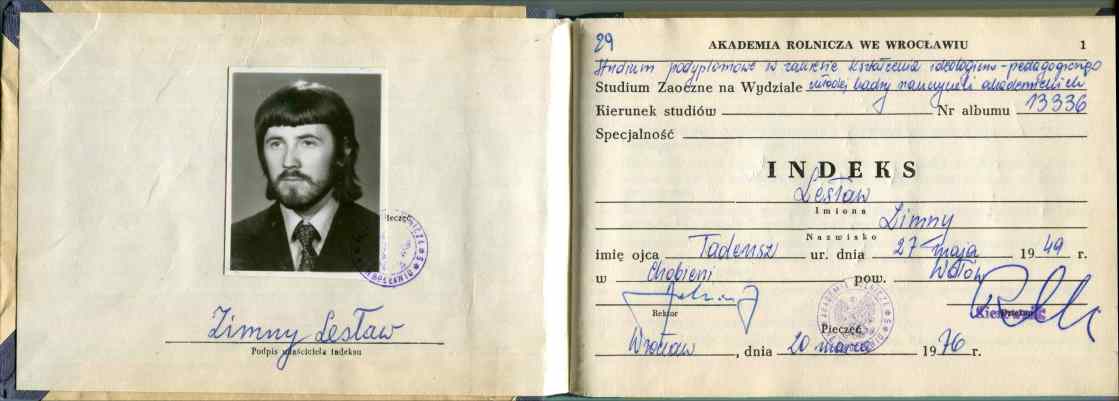 Pieczęć
Zimny Lesław
Podpis właściciela indeksu
29 AKADEMIA ROLNICZA WE WROCŁAWIU 1
Studium podyplomowe w zakresie kształcenia ideologiczno-pedagogicznego
Studium Zaoczne na Wydziale młodej kadry nauczycieli akademickich
Kierunek studiów Nr albumu 13336
Specjalność
INDEKS
Lesław
Imiona
Zimny
Nazwisko
imię ojca Tadeusz ur. dnia 27 maja 1949 r.
w Chobieni pow. Wołów
Rektor
Kierownik
Pieczęć
Wrocław, dnia 20 marca 1976 r.